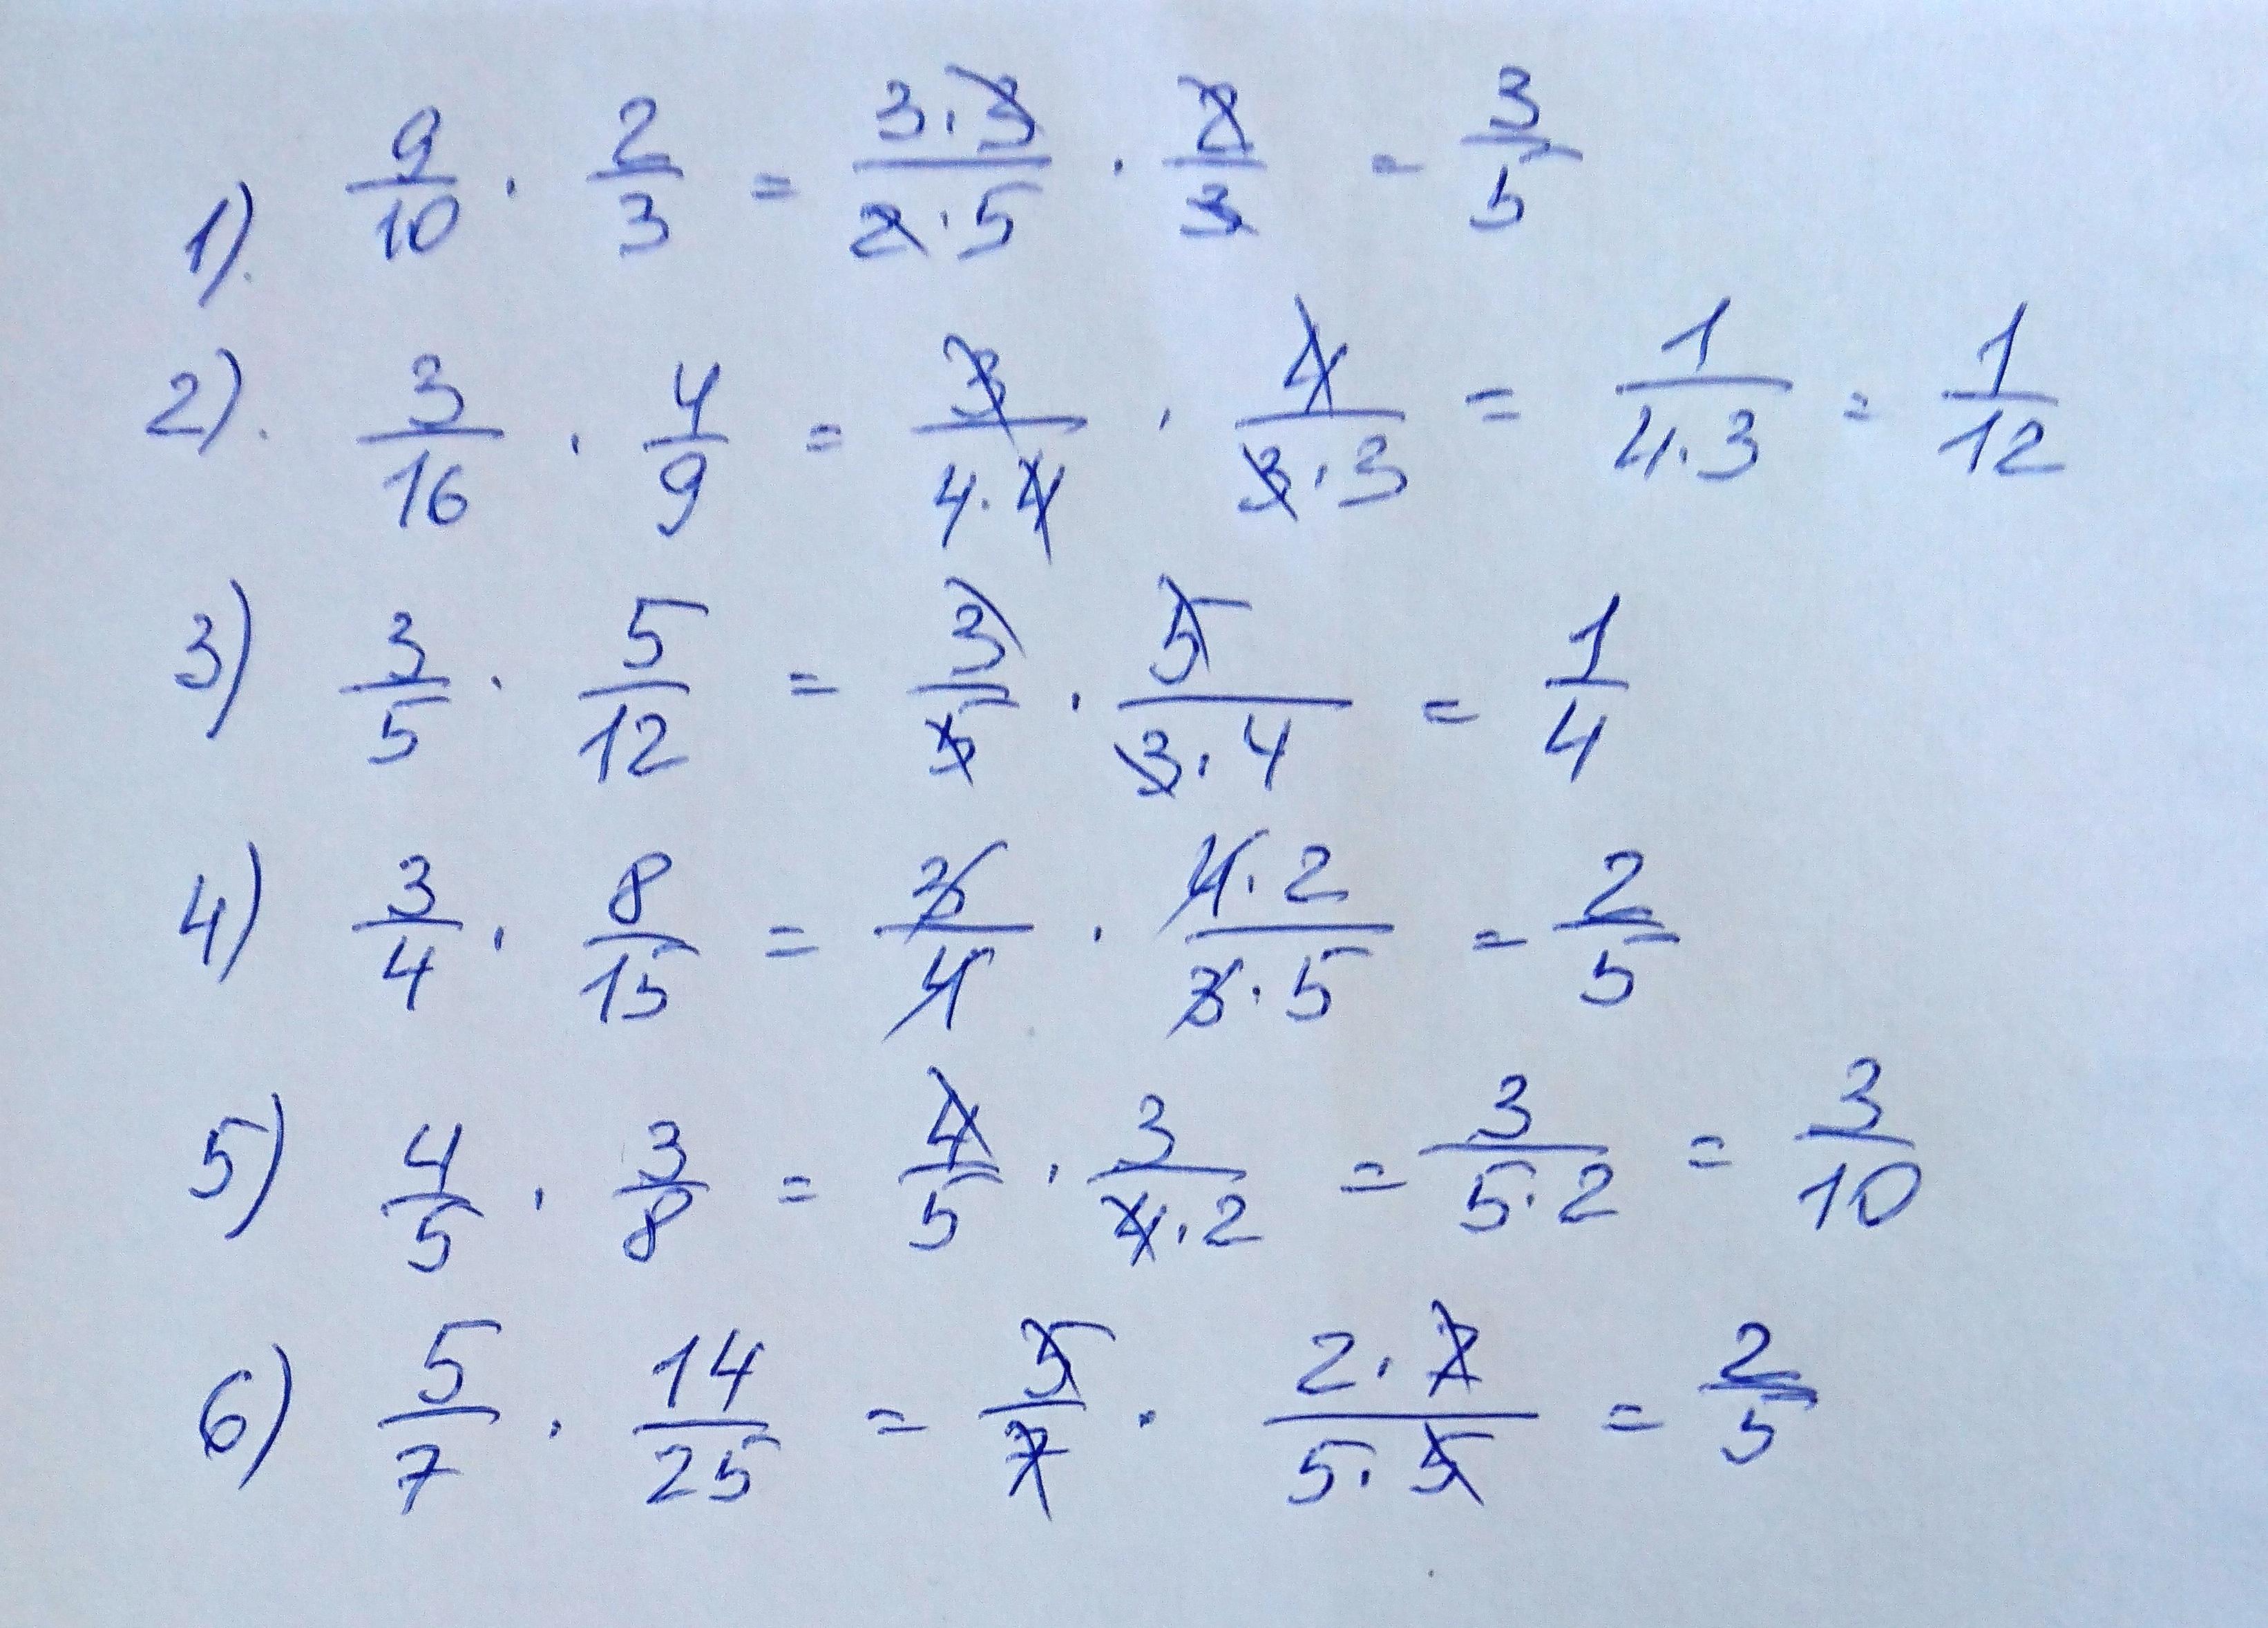 1). 9/10 · 2/3 = 3·3/2·5 · 2/3 = 3/5
2). 3/16 · 4/9 = 3/4·4 · 4/3·3 = 1/4·3 = 1/12
3) 3/5 · 5/12 = 3/5 · 5/3·4 = 1/4
4) 3/4 · 8/15 = 3/4 · 4·2/3·5 = 2/5
5) 4/5 · 3/8 = 4/5 · 3/4·2 = 3/5·2 = 3/10
6) 5/7 · 14/25 = 5/7 · 2·7/5·5 = 2/5